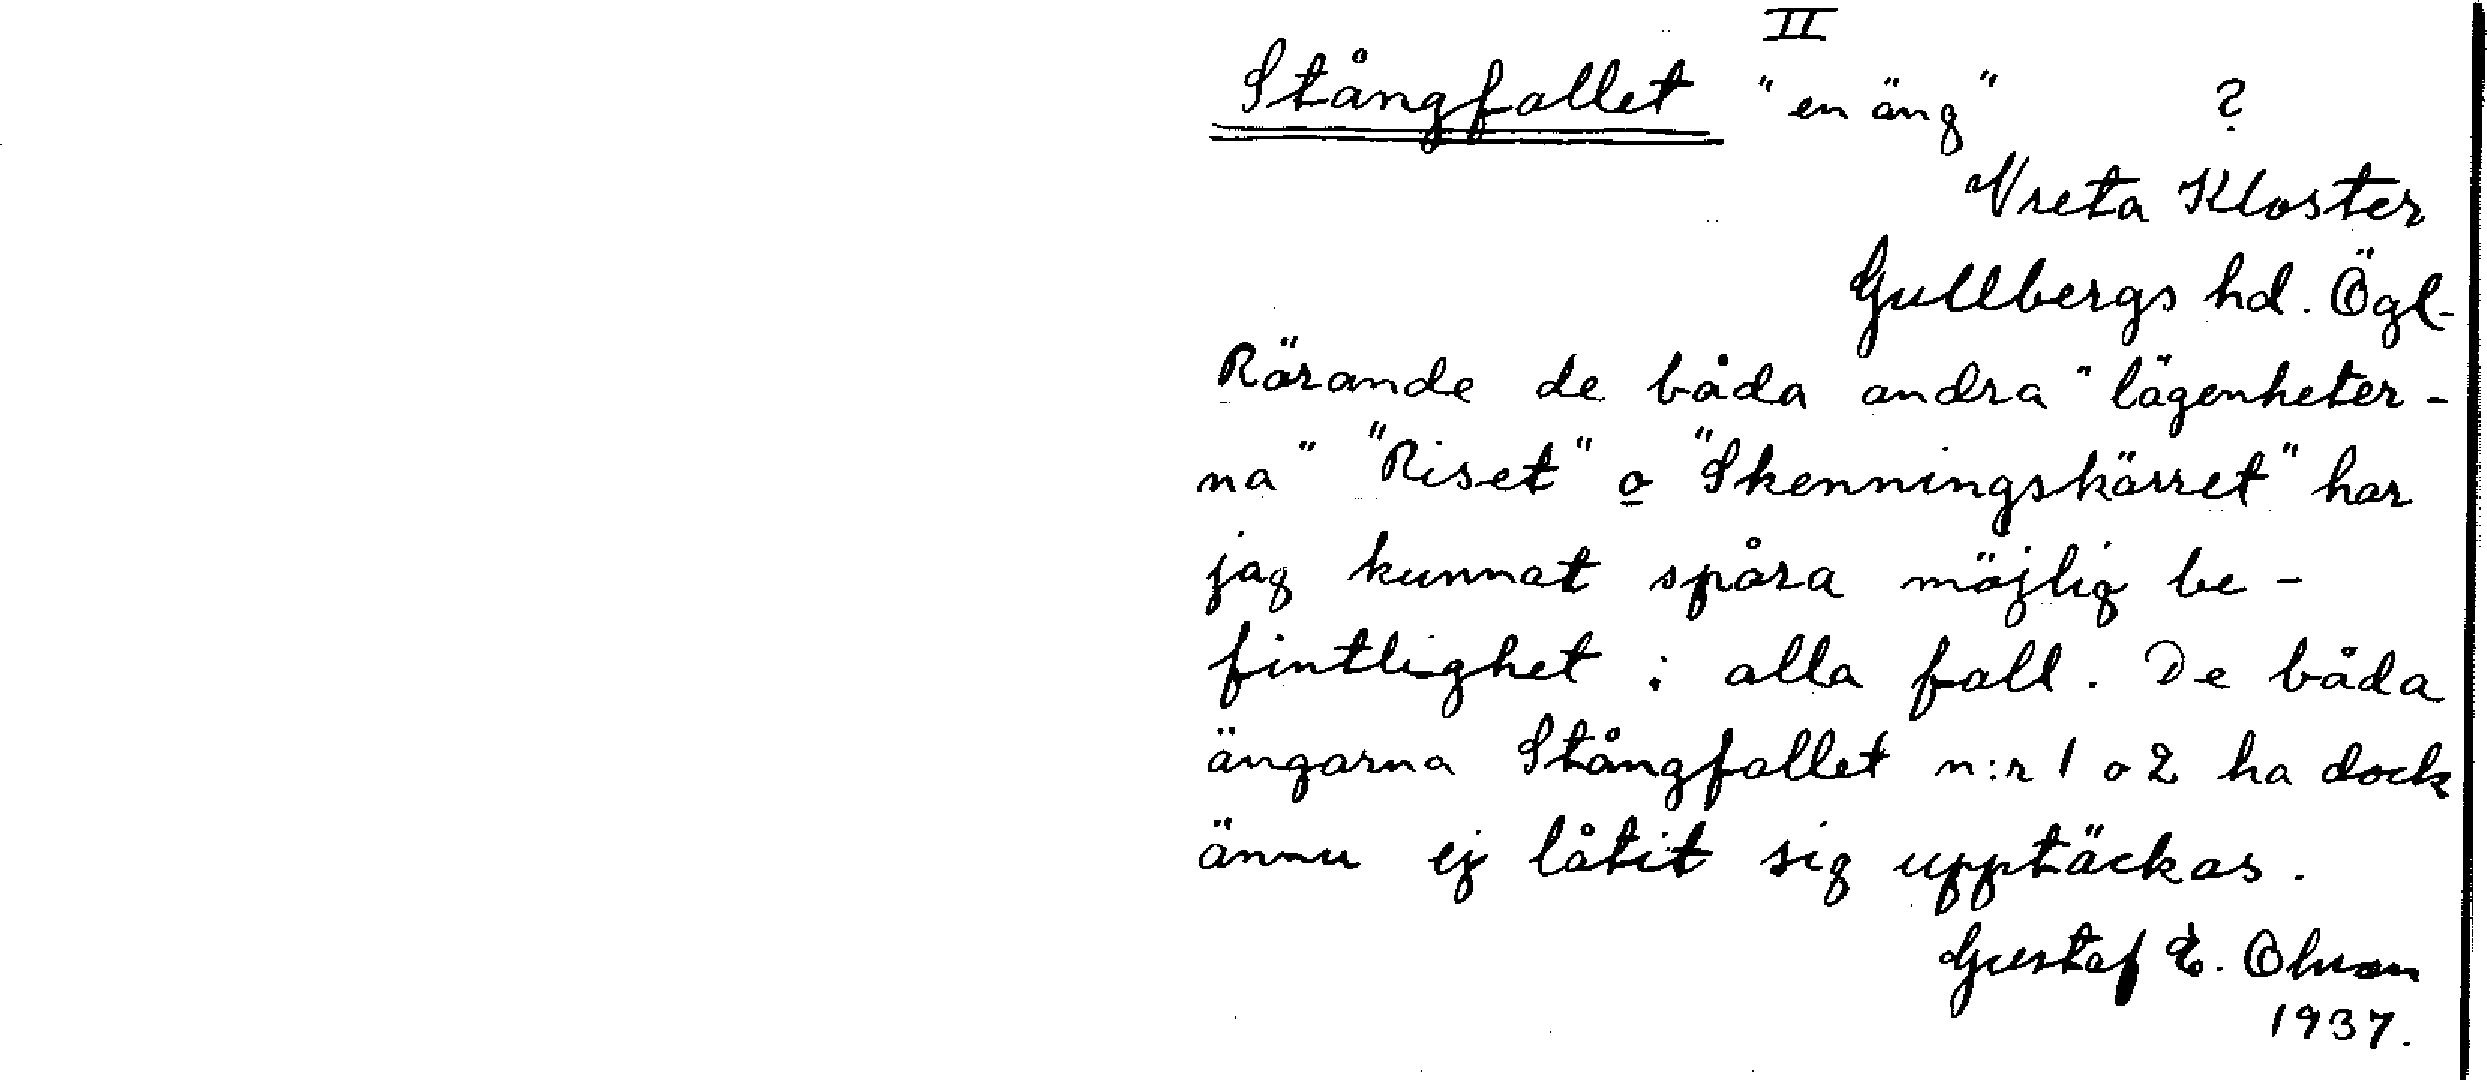 II
Stångfallet "en äng" ?
Vreta Kloster
Gullbergs hd. Ögl.
Rörande de båda andra "lägenheter-
na" "Riset" o "Skenningskärret" har
jag kunnat spåra möjlig be-
fintlighet i alla fall. De båda
ängarna Stångfallet n:r 1 o 2 ha dock
ännu ej låtit sig upptäckas.
Gustaf E. Olsson
1937.